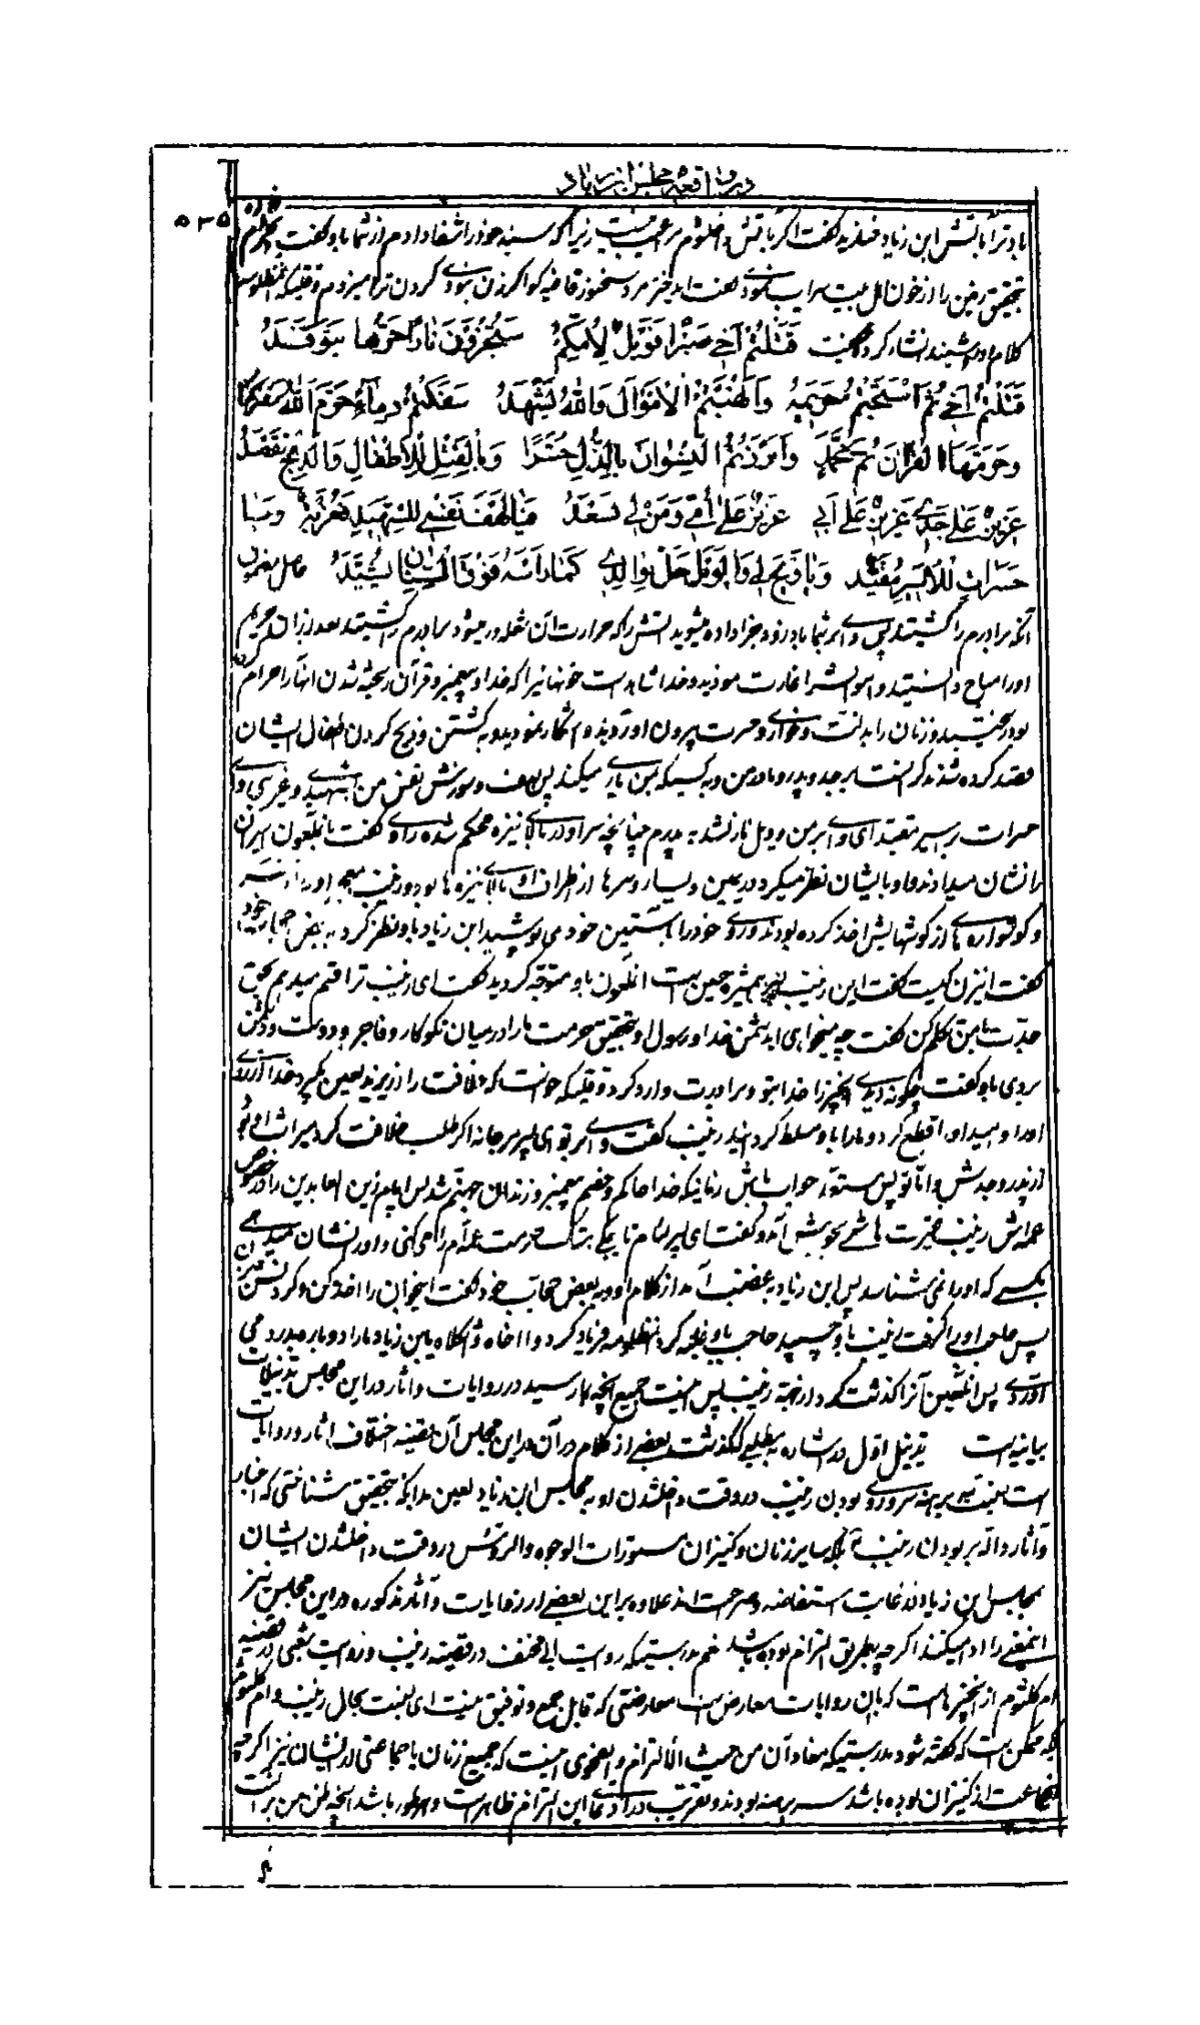 در واقعه مجلس ابن زیاد
٥٣٥
باد ترا باتش ابن زیاد خندید گفت اگر باتش داخل شوم مرا عیب نیست زیرا که سینه خود را شفا دادم از شما باو گفت
بتحقیق زمین را از خون اهل بیت سیراب نمودی گفت ای دختر مرد سخنور قافیه گو اگر زن نبودی گردن ترا میزدم وقتیکه مظلومه
کلام او را شنید انشاء کرد و گفت قَتَلْتُمْ أَخِي صَبْرًا فَوَيْلٌ لِأُمِّكُمْ سَتُجْزَوْنَ نَارًا حَرُّهَا يَتَوَقَّدُ
قَتَلْتُمْ أَخِي ثُمَّ اسْتَبَحْتُمْ حَرِيمَهُ وَأَنْهَبْتُمُ الْأَمْوَالَ وَاللَّهُ يَشْهَدُ سَفَكْتُمْ دِمَاءً حَرَّمَ اللَّهُ سَفْكَهَا
وَحَرَّمَهَا الْقُرْآنُ ثُمَّ مُحَمَّدٌ وَأَبْرَزْتُمُ النِّسْوَانَ بِالذُّلِّ حُسَّرًا وَبِالْقَتْلِ لِلْأَطْفَالِ وَالذَّبْحِ تَقْصِدُ
عَزِيزٌ عَلَى جَدِّي عَزِيزٌ عَلَى أَبِي عَزِيزٌ عَلَى أُمِّي وَمَنْ لِي يَسْعَدُ فَيَا لَهْفَ نَفْسِي لِلشَّهِيدِ
حَسَرَاتِ لِلْأَسِيرِ مُقَيَّد وَيَا وَيْحَ لِي وَالْوَيْلُ حَلَّ بِوَالِدِي كَمَا رَأْسُهُ فَوْقَ السِّنَانِ يُشَيَّدُ حاصل مضمون
آنکه برادرم را کشتید پس وای بر شما باد زود جزا داده میشوید آتش را که حرارت آن شعله ور میشود برادرم را کشتید بعد از آن حریم
او را مباح دانستید و اموالش را غارت نمودید و خدا شاهد است خونهائیرا که خدا و پیغمبر و قرآن ریخته شدن آنها را حرام
بود ریختید و زنان را بذلت و خواری و حسرت بیرون آوردید و آشکار نمودید و به کشتن و ذبح کردن اطفال ایشان
قصد کرده شد گرانست بر جد و پدر و مادر من و به کسیکه بمن یاری میکند پس لهف و سوزش نفس من بشهید
حسرات بر اسیر مقید ای وای بر من و ویل نازل شد به پدرم چنانچه سر او در بالای نیزه محکم شده راوی گفت ملعون اسیران
را نشان میدادند و او بایشان نظر میکرد در یمین و یسار و سرها از اطراف او بالای نیزه ها بود و زینب
و گوشواره ها از گوشهایش اخذ کرده بودند و روی خود را بآستین خود می پوشید ابن زیاد باو نظر کرد به بعض حجاب خود
گفت این زن کیست گفت این زینب همشیره حسین است آنملعون باو متوجه گردید گفت ای زینب ترا قسم میدهم بحق
جدت با من تکلم کن گفت چه میخواهی ای دشمن خدا و رسول او بتحقیق حرمت ما را در میان نکوکار و فاجر و دوست و دشمن
بردی باو گفت چگونه دیدی آنچیز را خدا بتو و برادرت وارد کرد وقتیکه خواست که خلافت را از یزید لعین بگیرد خدا آرزوی
او را و امید او را قطع کرد و ما را باو مسلط گردانید زینب گفت وای بر تو ای پسر مرجانه اگر طلب خلافت کرد میراث او بود
از پدر و جدش و اما تو پس مستعد جواب باش زمانیکه خدا حاکم و خصم پیغمبر و زندان جهنم شد پس امام زین العابدین را در خصوص
عمه اش زینب غیرت هاشمی بجوشش آمد و گفت ای پسر تا یکی هتک حرمت عمه ام را می کنی و او را نشان میدهی
بکسی که او را نمی شناسد پس ابن زیاد به غضب آمد از کلام او و به بعض حجاب خود گفت این جوان را اخذ کن و گردنش بزن
پس حاجب او را گرفت زینب باو چسپید حاجب باو غلبه کرد مظلومه فریاد کرد وا اخاه واثکلاه یابن زیاد ما را دوباره بدرد می
آوردی پس آنلعین آنرا گذشت کرد از جهة زینب پس اینست جمیع آنچه بما رسید در روایات و آثار در این مجلس تذییلات
بیانیه است تذییل اول در اشاره به مطلبی که گذشت بعضی از کلام در آن در این مجلس آن قضیه اختلاف آثار و روایات
است به نسبت به برهنه سر و روی بودن زینب در وقت داخل شدن او به مجلس ابن زیاد لعین بدانکه بتحقیق شناختی که اخبار
و آثار داله بر بودن زینب بلکه سایر زنان و کنیزان مستورات الوجوه والرؤس در وقت داخل شدن ایشان
بمجلس ابن زیاد در غایت استفاضه و صراحت اند علاوه بر این بعضی از روایات و آثار مذکوره در این مجلس نیز
اینمعنی را ادا میکند اگرچه بطریق التزام بوده باشد نعم بدرستیکه روایت ابی مخنف در قضیه زینب و روایت شعبی در قضیه
ام کلثوم از آنچیزهاست که بآن روایات معارض است معارضتی که قابل جمع و توفیق نیست ای نسبت بحال زینب و ام کلثوم
بلکه ممکن است که گفته شود بدرستیکه مفاد آن من حیث الالتزام والفحوی اینست که جمیع زنان یا جماعتی از ایشان نیز اگرچه
آنجماعت از کنیزان بوده باشد سر برهنه بودند و تقریب در ادعای این التزام ظاهر است و بهرطور باشد آنچه ظن من بر آنست